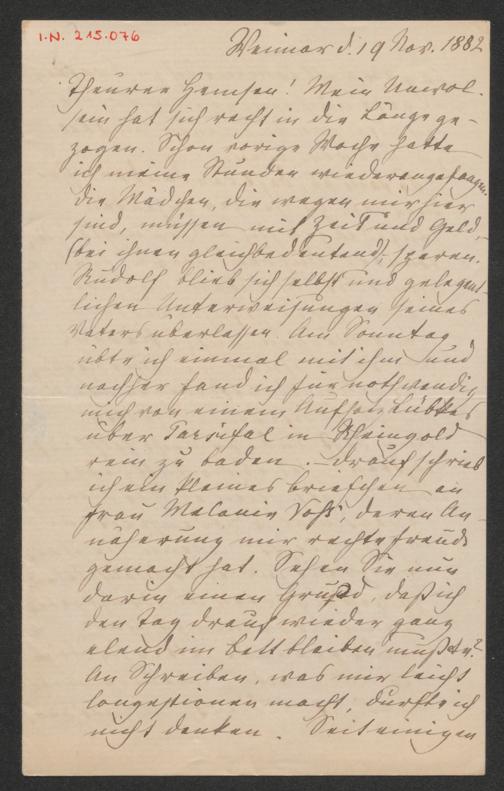 I.N. 215.076
Weimar d. 19 Nov. 1882
Theurer Hemsen! Mein Unwol-
sein hat sich recht in die Länge ge-
zogen. Schon vorige Woche hatte
ich meine Stunden wiederangefangen.
Die Mädchen, die wegen mir hier
sind, müssen mit Zeit und Geld
(bei ihnen gleichbedeutend), sparen.
Rudolf blieb sich selbst und gelegent
lichen Unterweisungen seines
Vaters überlassen. Am Sonntag
übte ich einmal mit ihm und
nachher fand ich für nothwendig
mich von einem Aufsatz Lübkes
über Parsifal in Rheingold
rein zu baden. – Drauf schrieb
ich ein kleines briefchen an
Frau Melanie Voß, deren An-
näherung mir rechte freude
gemacht hat. Sehen Sie nun
darin einen Grund, daß ich
den Tag drauf wieder ganz
elend im bett bleiben mußte?
An Schreiben, was mir leicht
Congestionen macht, durfte ich
nicht denken. Seit einigen